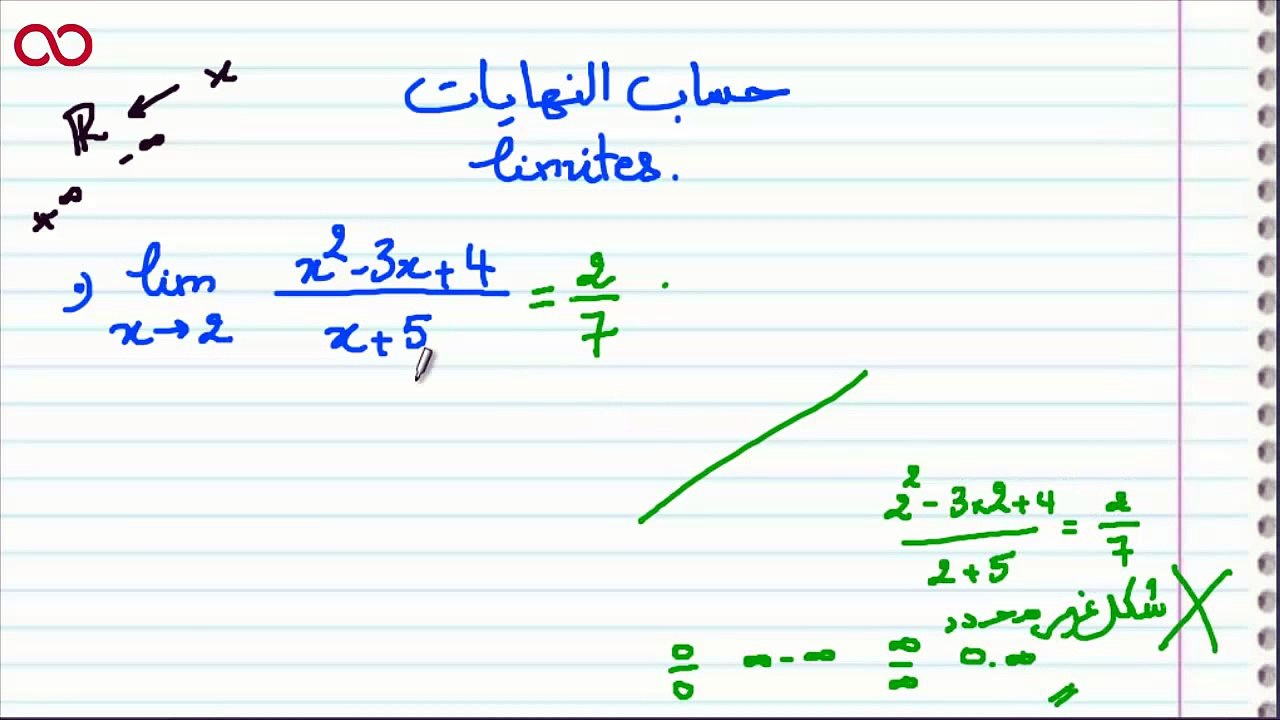 حساب النهايات
limites.
x
ℝ
-∞
x^∞
1) lim x→2 (x²-3x+4)/(x+5) = 2/7 .
(2²-3×2+4)/(2+5) = 2/7
شكل غير محدد X
0/0 ∞-∞ ∞/∞ 0.∞